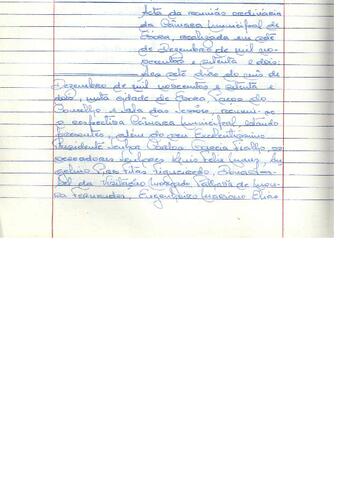 Acta da reunião ordinária
da Câmara Municipal de
Évora, realizada em sete
de Dezembro de mil no-
vecentos e setenta e dois:
Aos sete dias do mês de
Dezembro de mil novecentos e setenta e
dois, nesta cidade de Évora, Paços do
Concelho e sala das sessões, reuniu-se
a respectiva Câmara Municipal, estando
presentes, além do seu Excelentíssimo
Presidente Senhor Garcia Fialho, os
vereadores Senhores Luís Felix
Pires Pitas Figueiredo,
da Visitação de
sa Fernandes, Engenheiro Mariano Elias